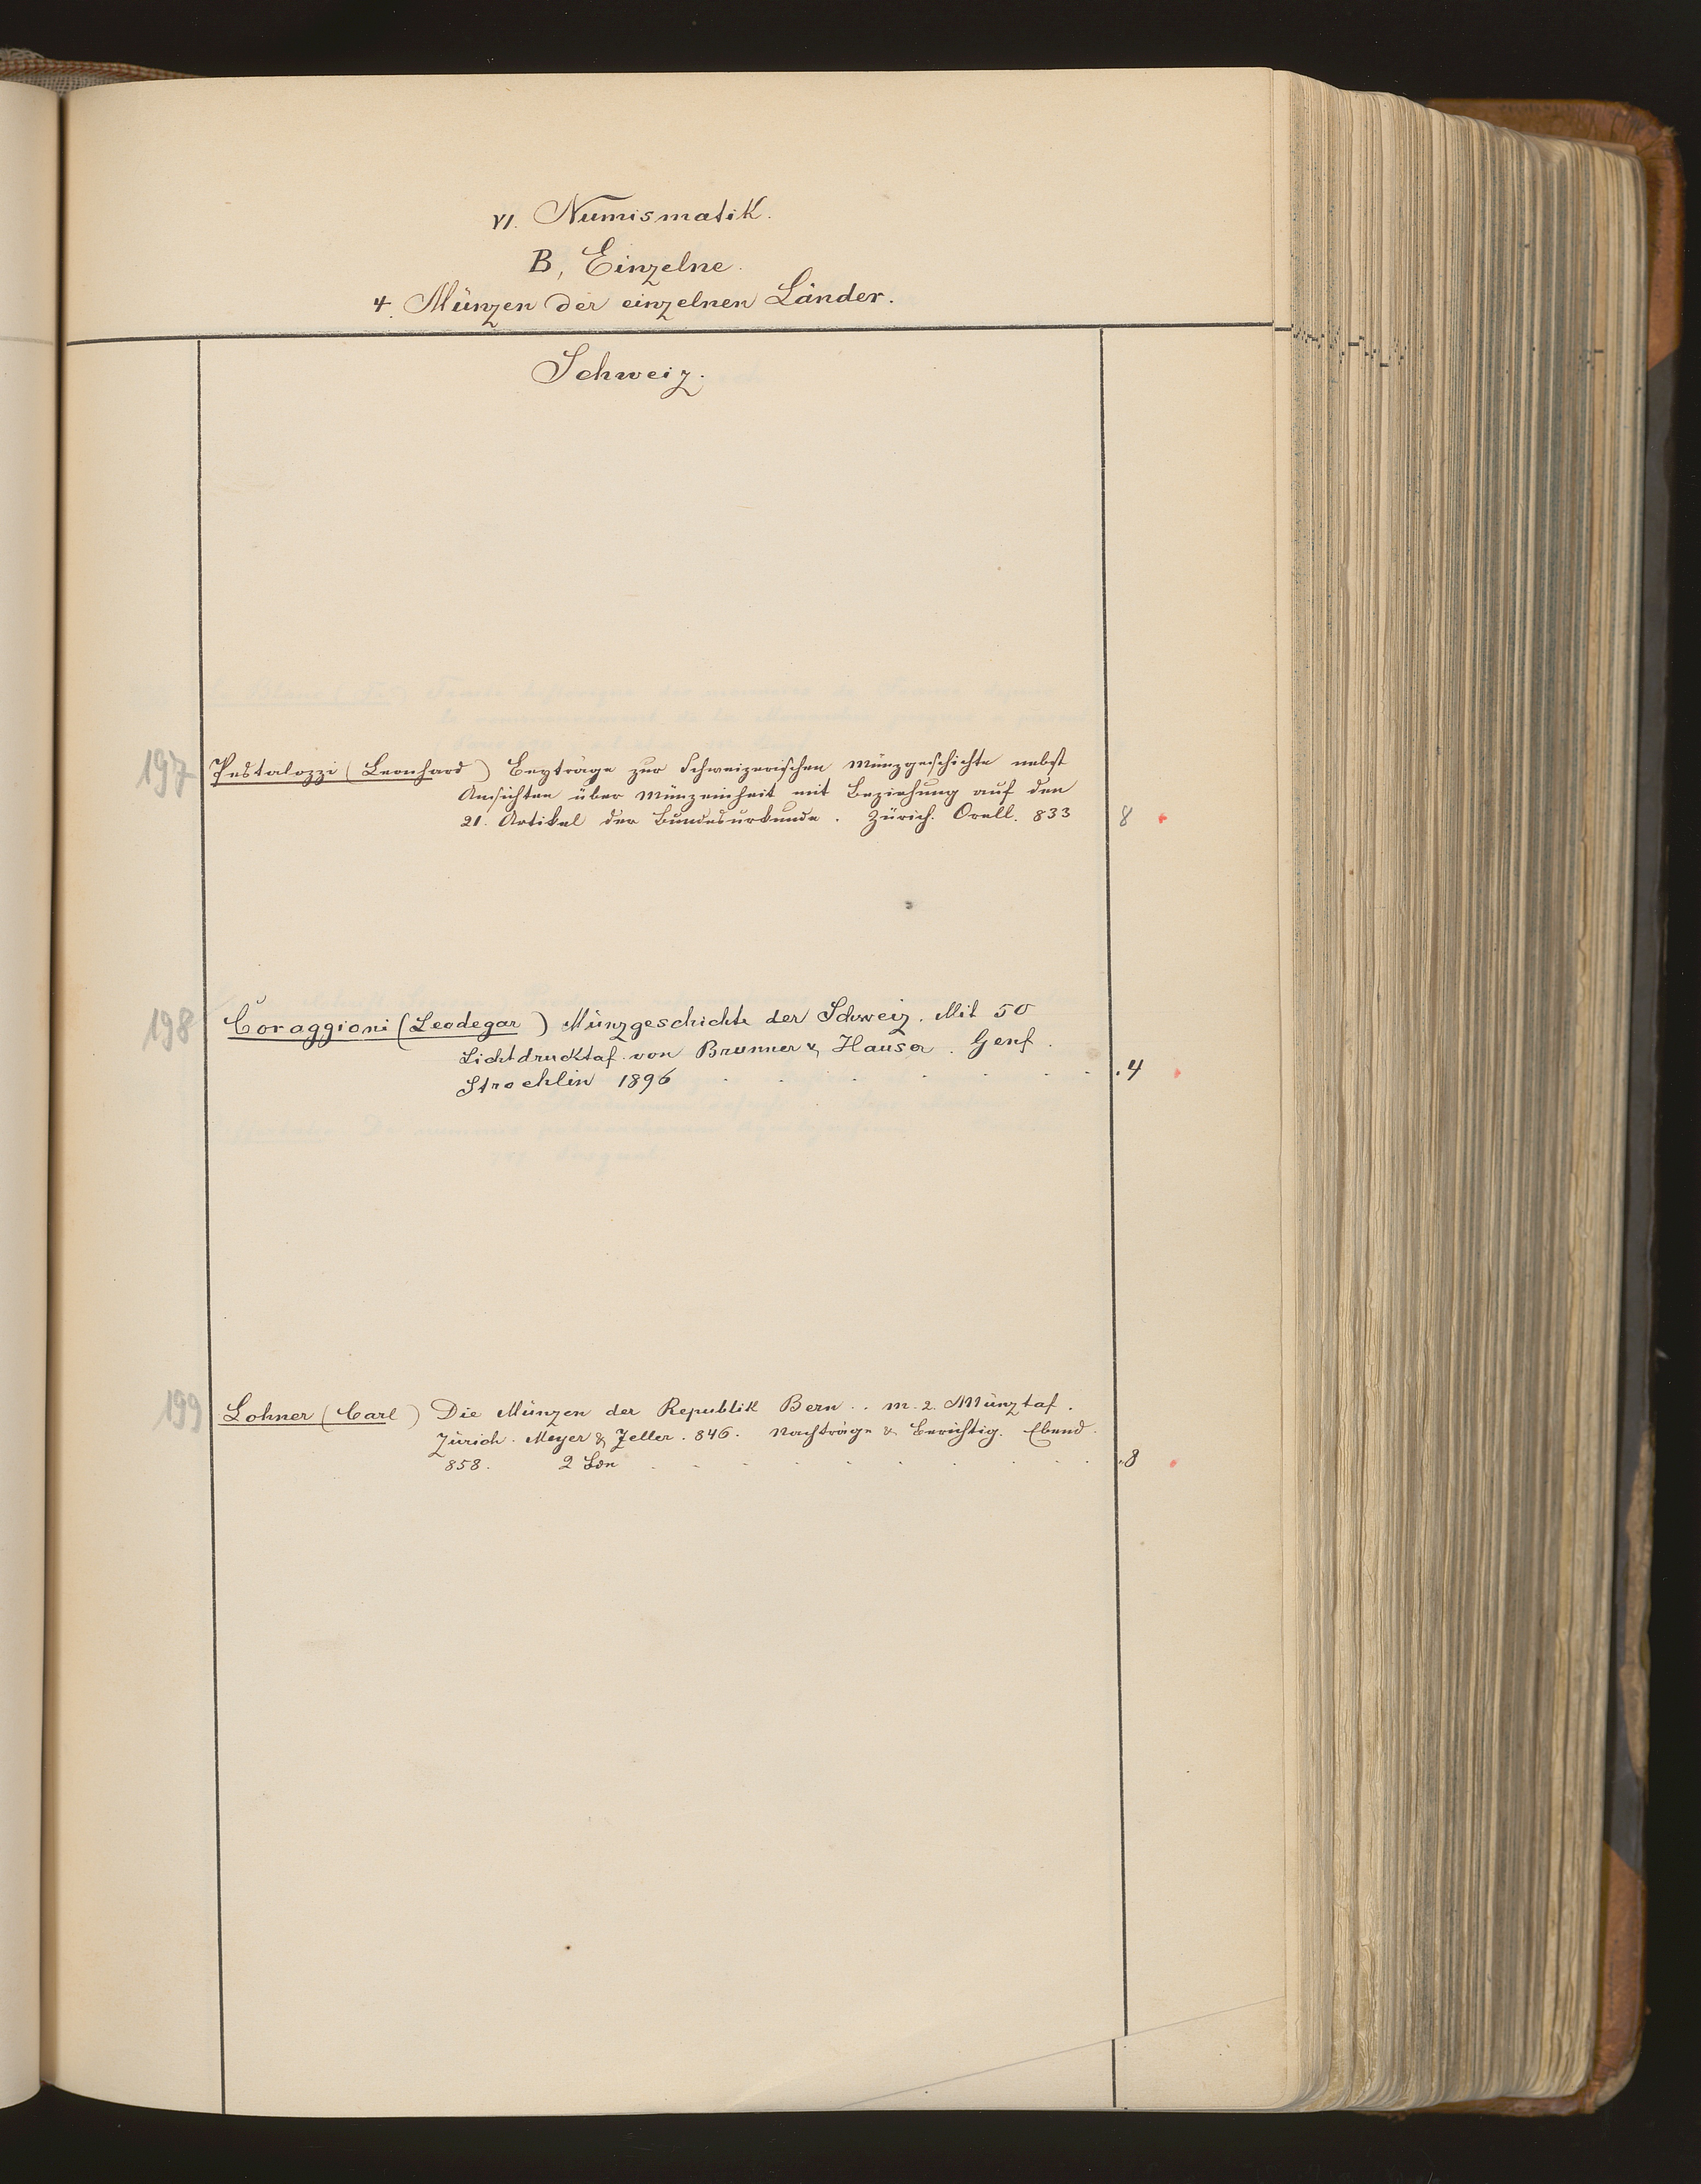 VI. Numismatik.
B, Einzelne.
4. Münzen der einzelnen Länder.
Schweiz.
197 Pestalozzi (Leonhard) Beyträge zur Schweizerischen Münzgeschichte nebst
Ansichten über Münzeinheit mit Beziehung auf den
21. Artikel der Bundesurkunde. Zürich. Orell. 833 8
198 Coraggioni (Leodegar) Münzgeschichte der Schweiz. Mit 50
Lichtdrucktaf. von Brunner & Hauser. Genf.
Stroehlin 1896 . . . . . . 4
199 Lohner (Carl) Die Münzen der Republik Bern.. m. 2. Münztaf.
Zürich. Meyer & Zeller. 846. Nachträge & Berichtig. Ebend.
858. 2 Bde . . . . . . . . . 8